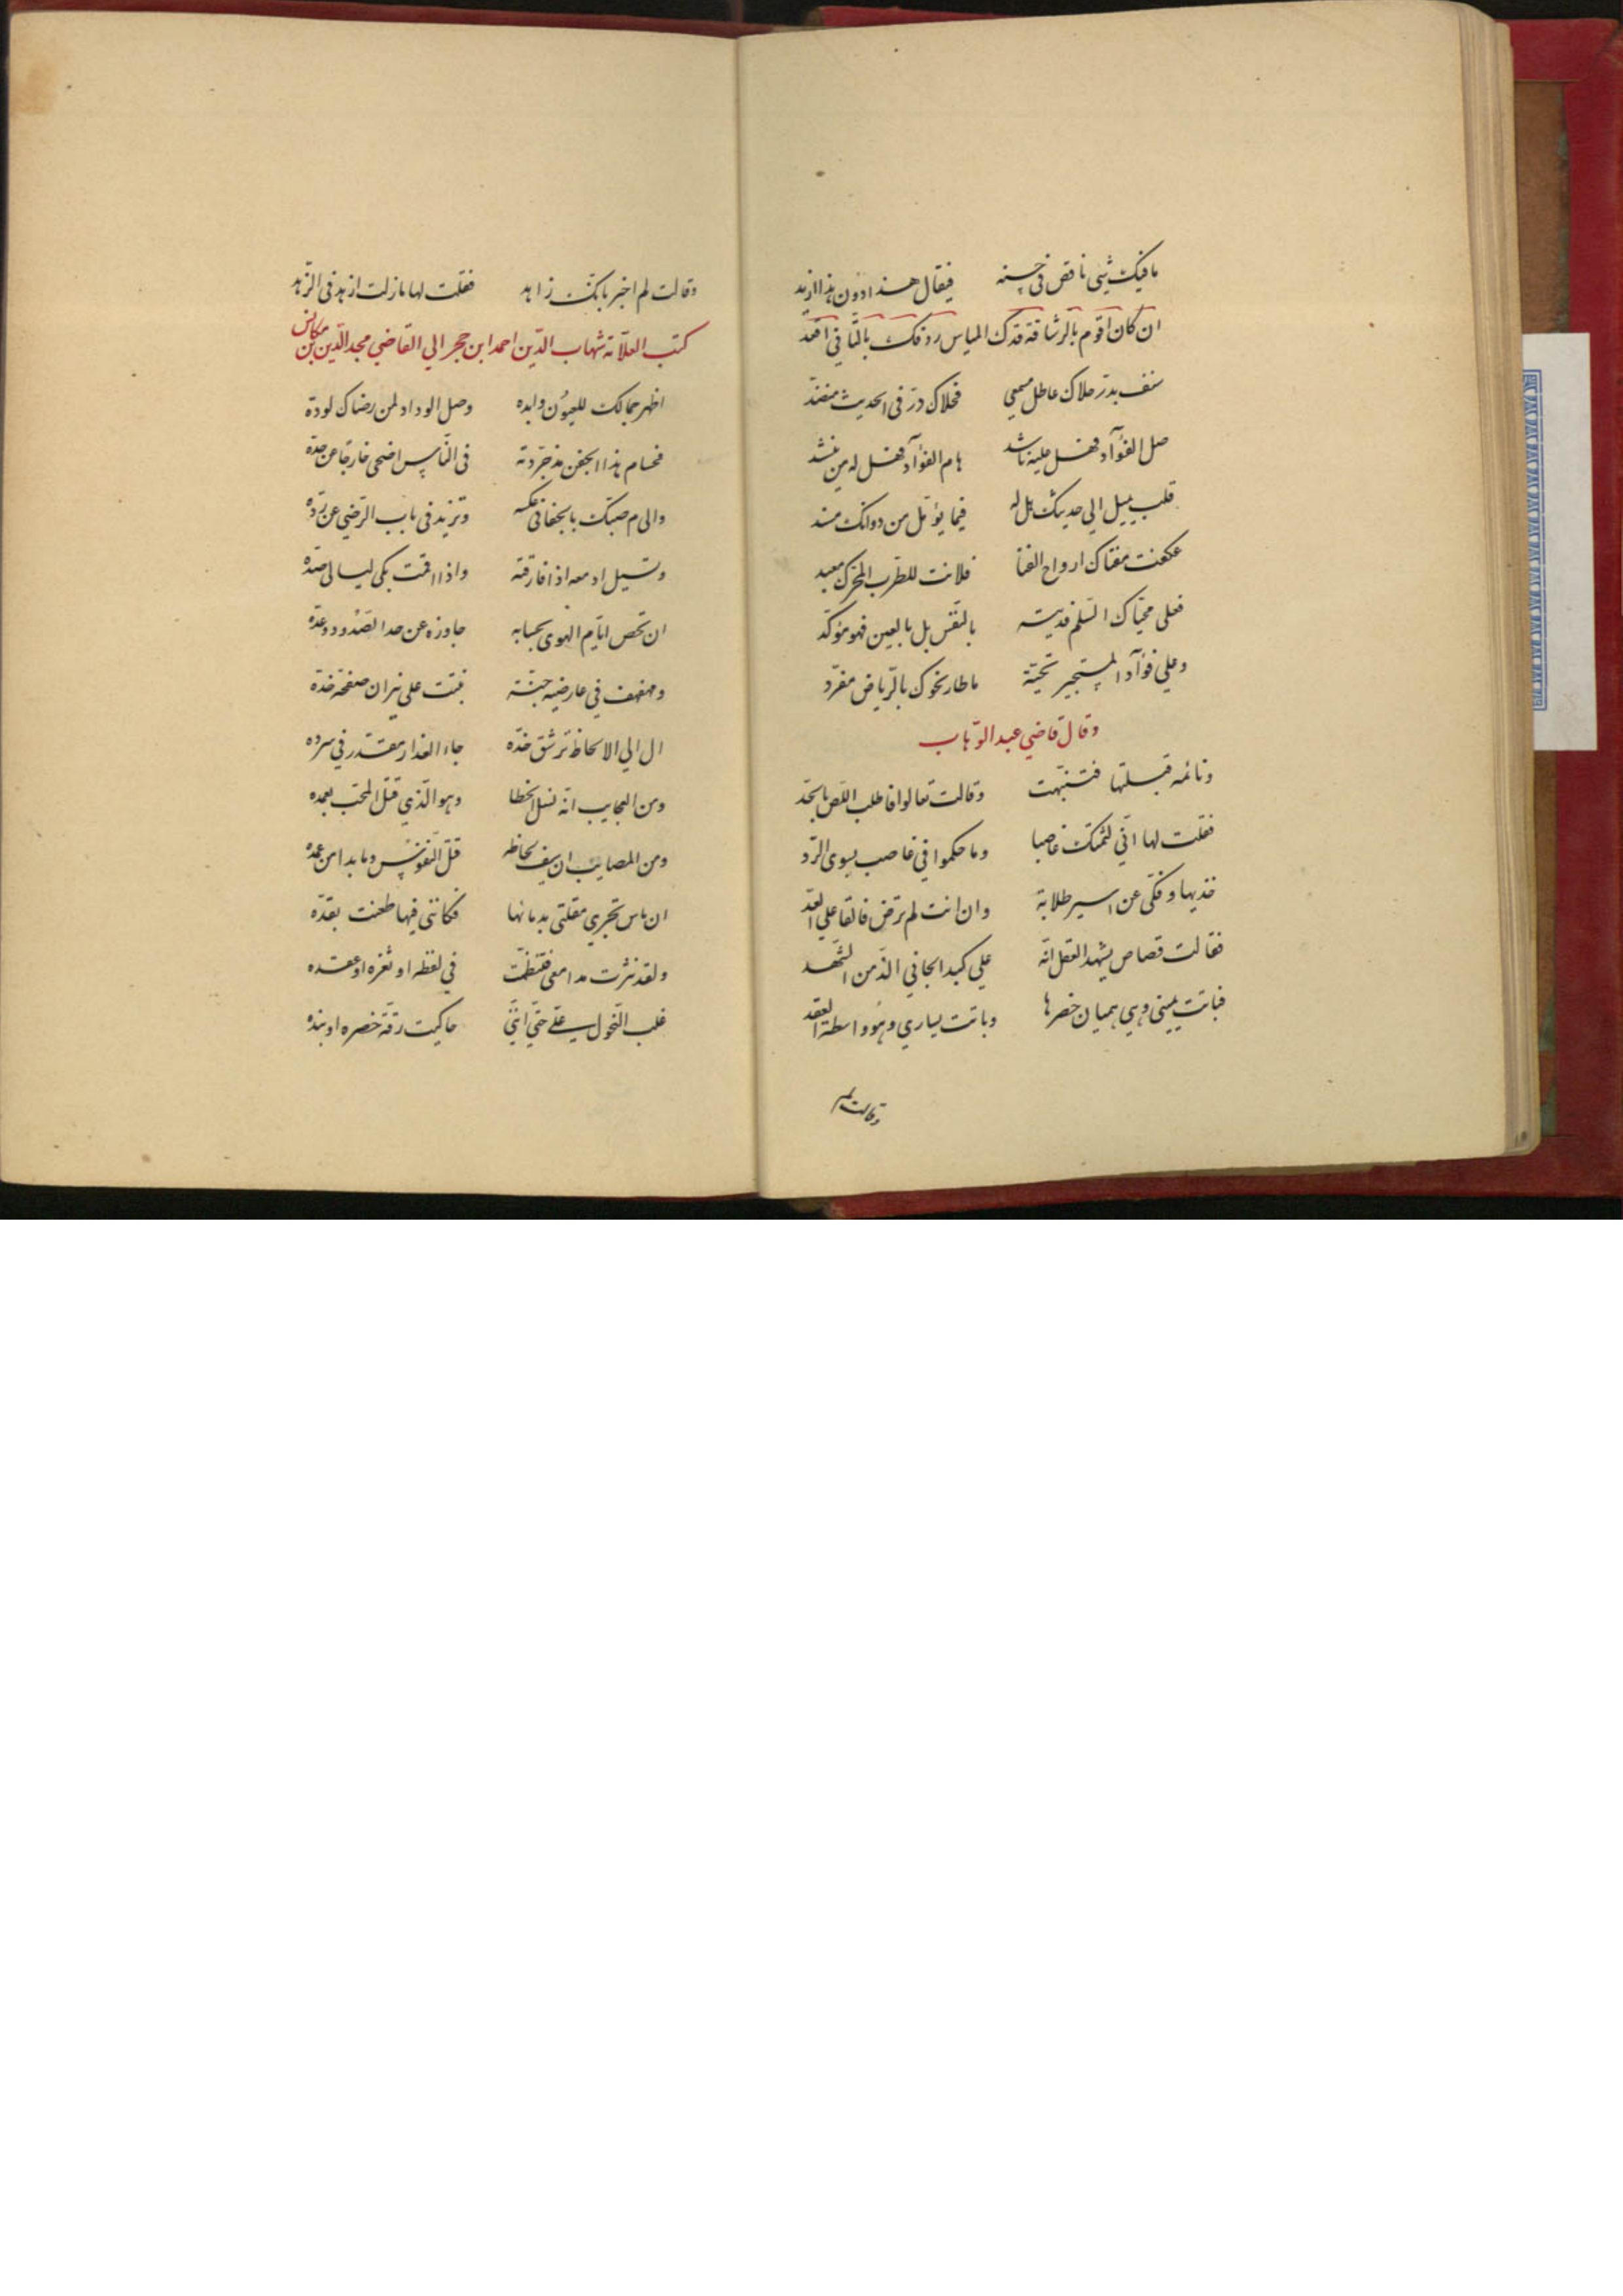 ما فيك شيء ناقص في حسنه فيقال هذا دون هذا ازيد
ان كان اقوم بالرشاقة قدك المياس ردفك بالتأني اقعد
شنف بدر حلاك عاطل مسمعي فحلاك در في الحديث منضد
صل الفؤآد فهل عليه ناشد هام الفؤآد فهل له من ينشد
قلب يميل الي حديثك هل له فيما يؤمل من دوانك مسند
عكفت مغناك ارواح الغنا فلانت للطرب المحرك معبد
فعلى محياك السلم فديته بالنفس بل بالعين فهو مؤكد
وعلي فؤآد المستجير تحية ما طار نحوك بالرياض مغرد
وقال قاضي عبد الوهاب
ونائمه قبلتها فتنبهت وقالت تعالوا فاطلب اللص بالحد
فقلت لها اني لثمتك غاصبا وما حكموا في غاصب بسوى الرد
خذيها وفكي عن اسير طلابة وان انت لم ترض فالفا علي العد
فقالت قصاص يشهد العقل انه علي كبد الجاني الذ من الشهد
فباتت يميني وهي هميان خصرها وباتت يساري وهو واسطة العقد
وقالت لم
وقالت لم اخبر بانك زاهد فقلت لها ما زلت ازهد في الزهد
كتب العلامة شهاب الدين احمد ابن حجر الي القاضي مجد الدين بن مكانس
اظهر جمالك للعيون وابده وصل الوداد لمن رضاك لوده
فحسام هذا الجفن مذ جردته في الناس اضحى خارجا عن حده
والى م صبك بالجفا في عكسه وتزيد في باب الرضي عن رده
وتسيل ادمعه اذا فارقته واذا اقمت بكى ليالى صده
ان تحص ايام الهوى بحسابه جاوزه عن حد الصدود وعده
ومهفهف في عارضيه جنة نبتت على نيران صفحة خده
ال الي الالحاظ ترشق خده جاء العذار مقتدر في سرده
ومن العجايب انه نسل الخطا وهو الذي قتل المحب بعمده
ومن المصايب ان سيف لحاظه قتل النفوس وما بدا من غمده
ان ماس تجري مقلتي بدمائها فكانني فيها طعنت بقده
ولقد نثرت مدامعي فتنظمت في لفظه او ثغره او عقده
غلب النحول علي حتي انني حاكيت رقة خصره او بنده